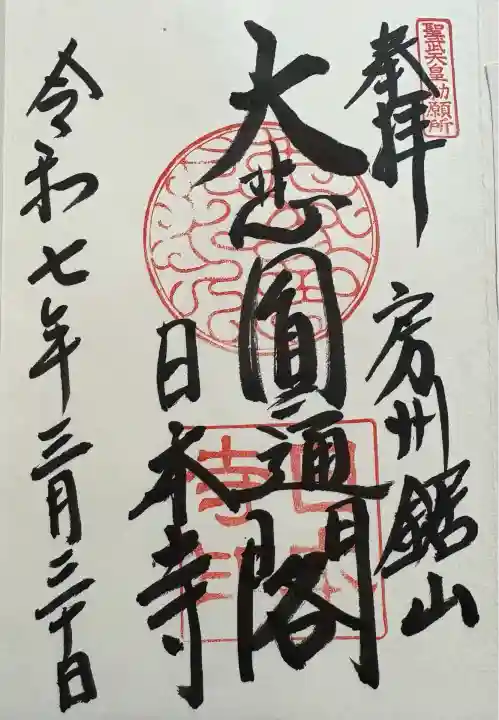 聖武天皇勅願所
奉拝
房州鋸山
大悲圓通閣
日本寺
令和七年三月三十日